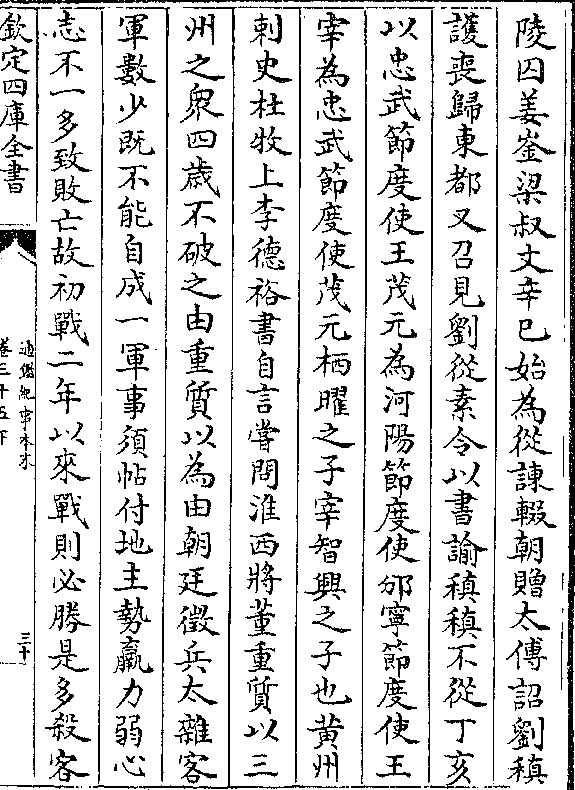 陵囚姜崟梁叔文辛巳始為從諫輟朝贈太傅詔劉稹
護喪歸東都又召見劉從素令以書諭稹稹不從丁亥
以忠武節度使王茂元為河陽節度使邠寧節度使王
宰為忠武節度使茂元栖曜之子宰智興之子也黄州
刺史杜牧上李德裕書自言嘗問淮西將董重質以三
州之衆四歲不破之由重質以為由朝廷徵兵太雜客
軍數少既不能自成一軍事須帖付地主勢羸力弱心
志不一多致敗亡故初戰二年以來戰則必勝是多殺客
欽定四庫全書
通鑑紀事本末
卷三十五下
三十